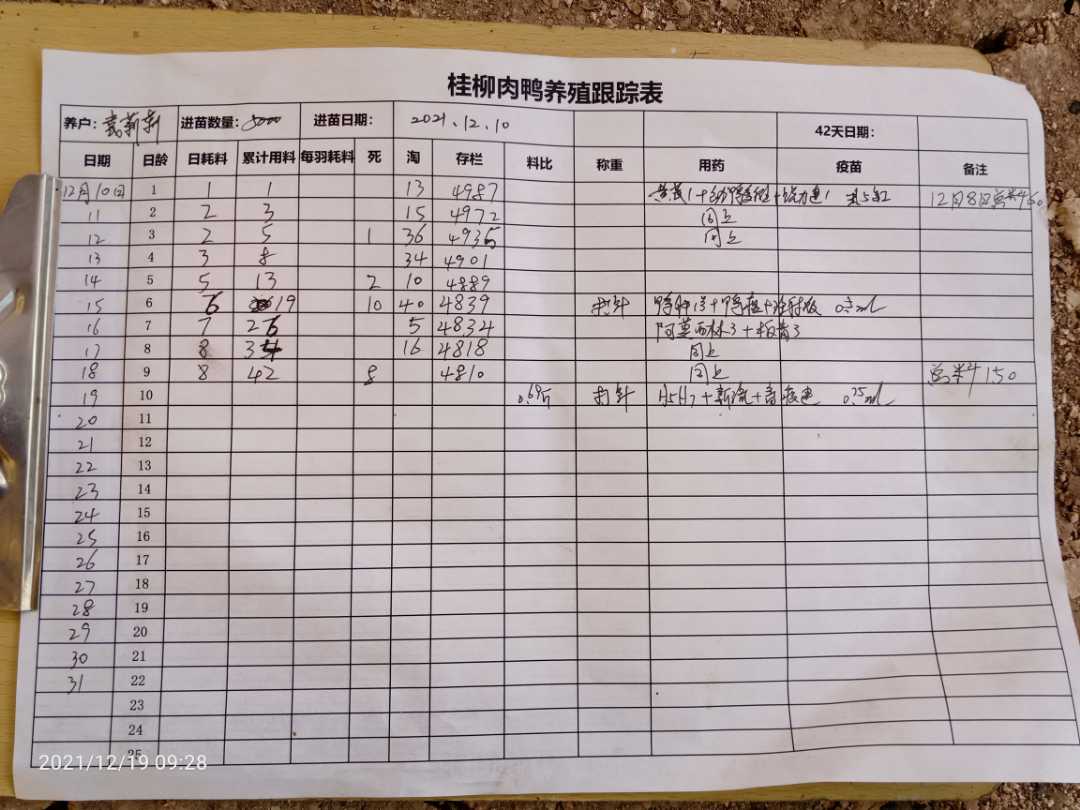 桂柳肉鸭养殖跟踪表
养户: 进苗数量: 5000 进苗日期: 2021.12.10 42天日期:
日期 日龄 日耗料 累计用料 每羽耗料 死 淘 存栏 料比 称重 用药 疫苗 备注
12月10日 1 1 1 13 4987 12月8日
11 2 2 3 15 4972 同上
12 3 2 5 1 36 4935 同上
13 4 3 8 34 4901
14 5 5 13 2 10 4889
15 6 6 19 10 40 4839 打针
16 7 7 26 5 4834 阿莫西林3+板青3
17 8 8 34 16 4818 同上
18 9 8 42 8 4810 同上 150
19 10 0.69斤 打针 H5H7+新流+ 0.75ml
20 11
21 12
22 13
23 14
24 15
25 16
26 17
27 18
28 19
29 20
30 21
31 22
23
24
25
2021/12/19 09:28